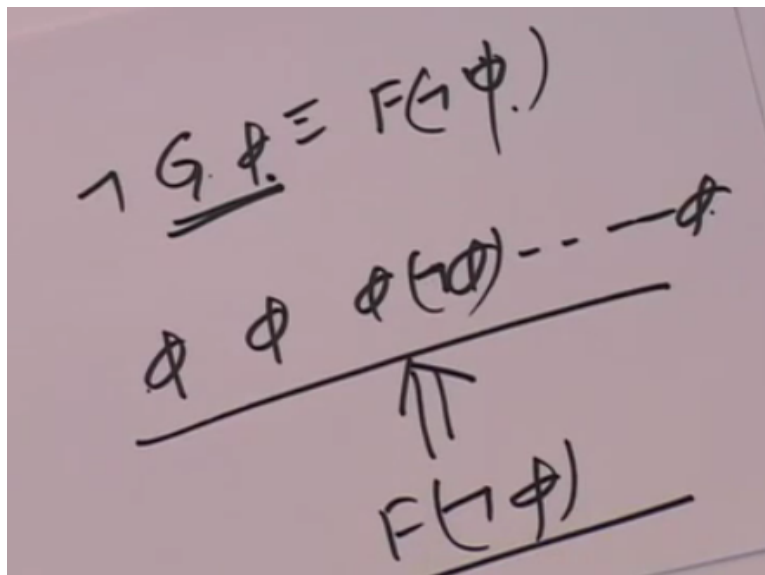 ¬ G φ ≡ F(¬ φ)
φ φ φ (¬φ) - - — φ
F(¬ φ)